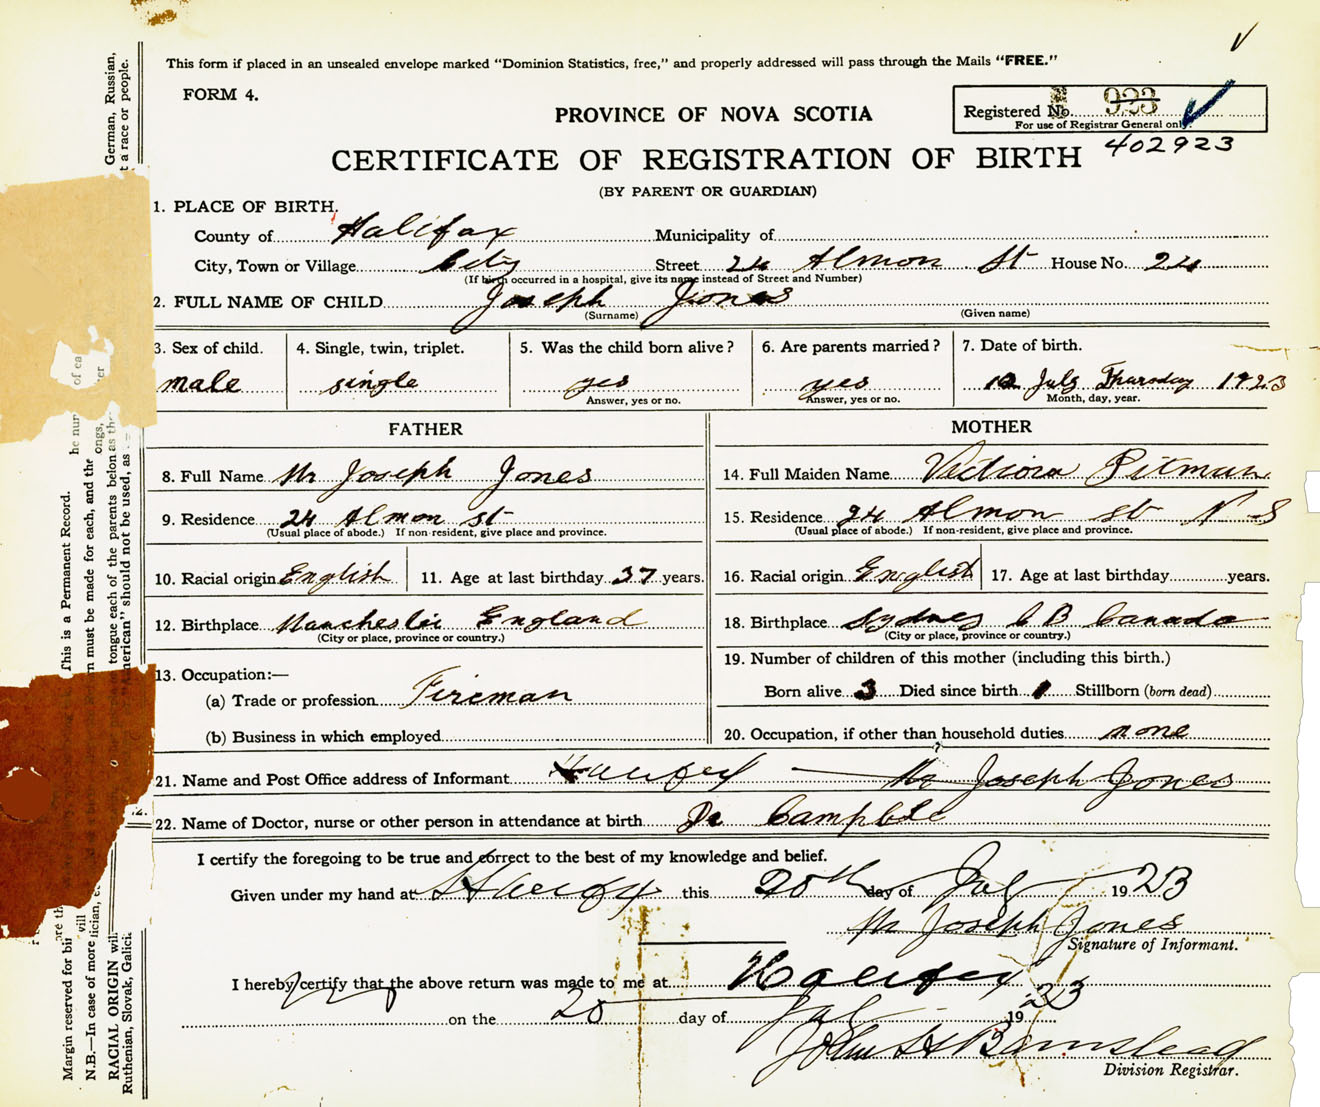 This form if placed in an unsealed envelope marked "Dominion Statistics, free," and properly addressed will pass through the Mails "FREE."
FORM 4.
PROVINCE OF NOVA SCOTIA
Registered No. 933
For use of Registrar General only.
402923
CERTIFICATE OF REGISTRATION OF BIRTH
(BY PARENT OR GUARDIAN)
1. PLACE OF BIRTH.
County of Halifax Municipality of
City, Town or Village City Street 24 Almon St House No. 24
(If birth occurred in a hospital, give its name instead of Street and Number)
2. FULL NAME OF CHILD Joseph Jones
(Surname) (Given name)
3. Sex of child. 4. Single, twin, triplet. 5. Was the child born alive? 6. Are parents married? 7. Date of birth.
male single yes yes 12 July Thursday 1923
Answer, yes or no. Answer, yes or no. Month, day, year.
FATHER MOTHER
8. Full Name Mr Joseph Jones 14. Full Maiden Name Victiora Pitman
9. Residence 24 Almon st 15. Residence 24 Almon st N S
(Usual place of abode.) If non-resident, give place and province. (Usual place of abode.) If non-resident, give place and province.
10. Racial origin English 11. Age at last birthday 37 years. 16. Racial origin English 17. Age at last birthday years.
12. Birthplace Manchester England 18. Birthplace Sydney C B Canada
(City or place, province or country.) (City or place, province or country.)
13. Occupation:— 19. Number of children of this mother (including this birth.)
(a) Trade or profession Fireman Born alive 3 Died since birth 1 Stillborn (born dead)
(b) Business in which employed 20. Occupation, if other than household duties none
21. Name and Post Office address of Informant Halifax — Mr Joseph Jones
22. Name of Doctor, nurse or other person in attendance at birth Dr Campble
I certify the foregoing to be true and correct to the best of my knowledge and belief.
Given under my hand at this 20th day of July 1923
Mr Joseph Jones
Signature of Informant.
I hereby certify that the above return was made to me at Halifax
on the 20 day of July 1923
John H Barnstead
Division Registrar.
German, Russian,
t a race or people.
This is a Permanent Record.
n must be made for each, and the
tongue each of the parents belon
American" should not be used, as
Margin reserved for bi
N.B.—In case of more
RACIAL ORIGIN wil
Ruthenian, Slovak, Galic